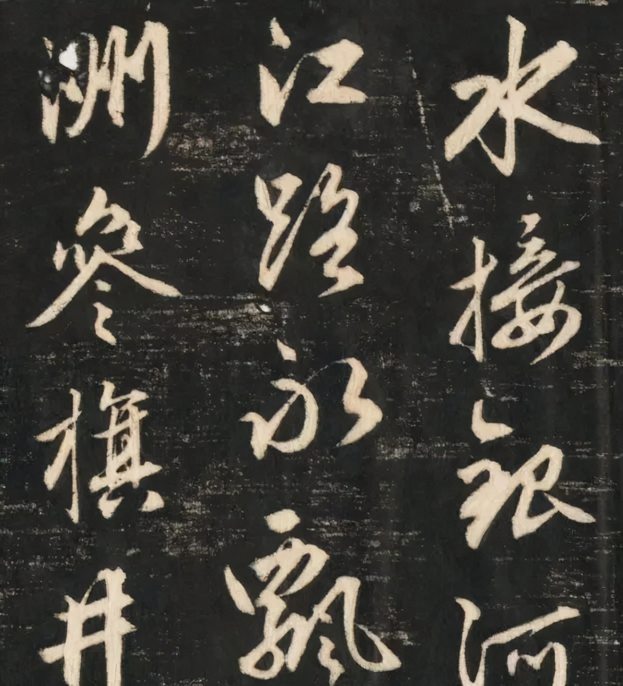 水接銀河
江路永飄
洲參旗井